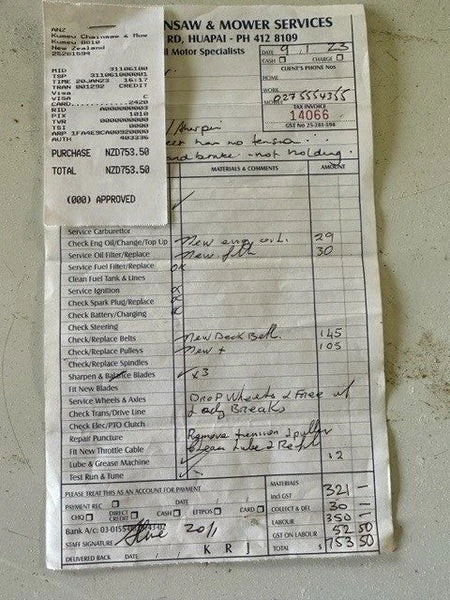 ANZ
Kumeu Chainsaw & Mow
Kumeu 0810
New Zealand
25261594
MID 31106100
TSP 311061000001
TIME 20JAN23 16:17
TRAN 001292 CREDIT
Visa
VISA C
CARD 2420
RID A000000003
PIX 1010
TVR 0000000000
TSI 0000
ARP 1FA4E9CA00920000
AUTH 403336
PURCHASE NZD753.50
TOTAL NZD753.50
(000) APPROVED
NSAW & MOWER SERVICES
RD, HUAPAI - PH 412 8109
l Motor Specialists
DATE 9 1 23
CASH CHARGE
CLIENT'S PHONE Nos
HOME
WORK
MOBILE 0275554355
TAX INVOICE
14066
GST No 25-281-594
has no tension
and brake not holding.
MATERIALS & COMMENTS AMOUNT
Service Carburettor
Check Eng Oil/Change/Top Up New eng oil. 29
Service Oil Filter/Replace New filt 30
Service Fuel Filter/Replace OK
Clean Fuel Tank & Lines
Service Ignition
Check Spark Plug/Replace
Check Battery/Charging
Check Steering
Check/Replace Belts New Deck Belt. 145
Check/Replace Pulleys New + 105
Check/Replace Spindles
Sharpen & Balance Blades x3
Fit New Blades
Service Wheels & Axles Drop Wheels & Free up
Check Trans/Drive Line Breaks
Check Elec/PTO Clutch
Repair Puncture Remove tension pulley
Fit New Throttle Cable Clean Lube & Refit
Lube & Grease Machine 12
Test Run & Tune
PLEASE TREAT THIS AS AN ACCOUNT FOR PAYMENT
PAYMENT REC CASH CARD
CHQ DIRECT CREDIT EFTPOS
Bank A/c: 03-0155
STAFF SIGNATURE 20/1
DELIVERED BACK DATE / / K R J
MATERIALS incl GST 321 -
COLLECT & DEL 30 -
LABOUR 350 -
GST ON LABOUR 52 50
TOTAL $ 753 50